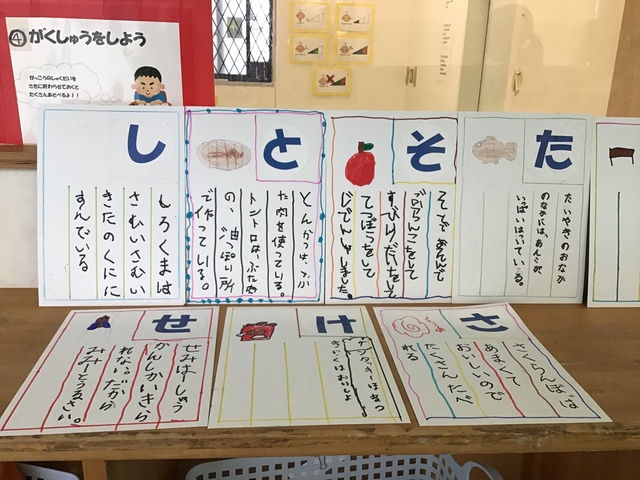 ④がくしゅうをしよう
がっこうのしゅくだいを
さきに終わらせておくと
たくさんあそべるよ！！
し
しろくまは
さむいさむい
きたのくにに
すんでいる
と
とんかつは、ぶ
た肉を使っている。
トントロは、ぶた
の、油っぽい所
で作っている。
そ
そとであそんで
ブランコをして
すべりだいをして
てつぼうをして
た
たいやきのおなか
のなかには、あんこが
いっぱいはいている。
せ
せみはーしゅう
かんしかいきら
れない。だから
みーとうるさい。
け
さ
さくらんぼは
あまくて
おいしいので
たくさんたべ
れる